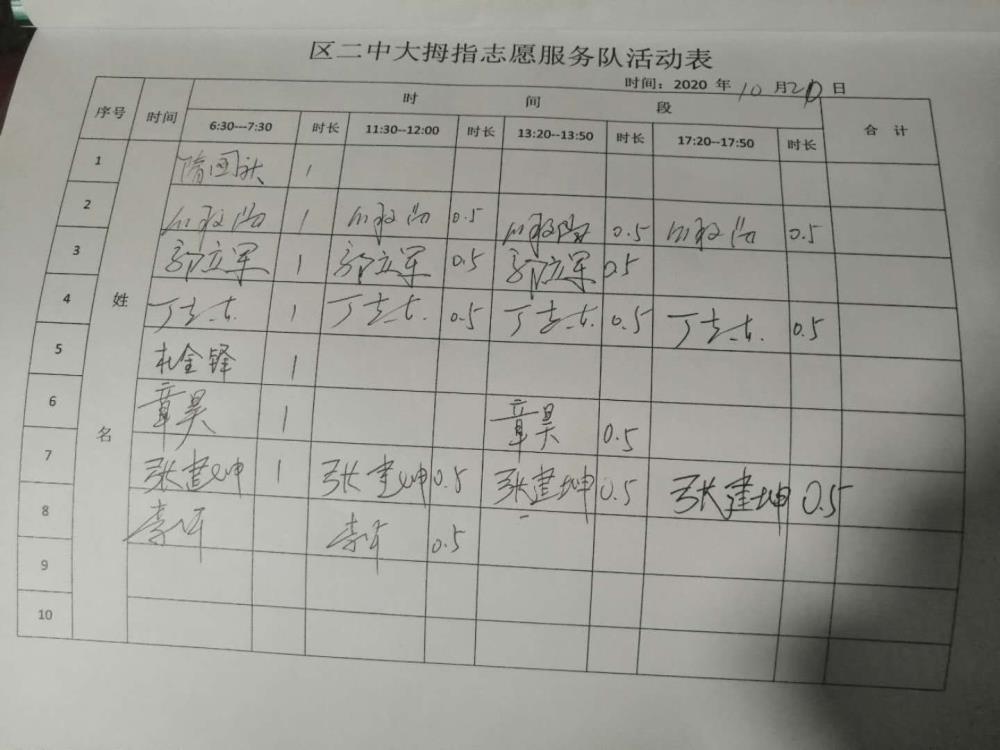 区二中大拇指志愿服务队活动表
时间：2020 年 10 月 20 日
序号 时间 时 间 段 合 计
6:30---7:30 时长 11:30--12:00 时长 13:20--13:50 时长 17:20--17:50 时长
姓名
1 隋国 1
2 1 0.5 0.5 0.5
3 郭立军 1 郭立军 0.5 郭立军 0.5
4 丁志 1 丁志 0.5 丁志 0.5 丁志 0.5
5 杜金铎 1
6 章昊 1 章昊 0.5
7 张建坤 1 张建坤 0.5 张建坤 0.5 张建坤 0.5
8 李 李 0.5
9
10